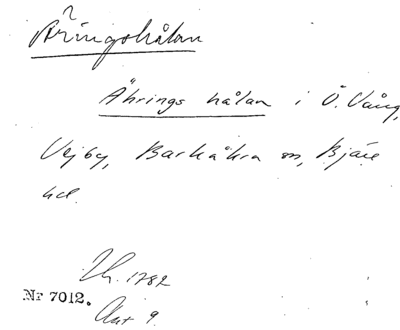 ?
Äringshålan
Ährings hålan i Ö. Vång,
Vejby, Barkåkra sn, Bjäre
hd.
Lh. 1782
Nr 7012.
Akt 9.